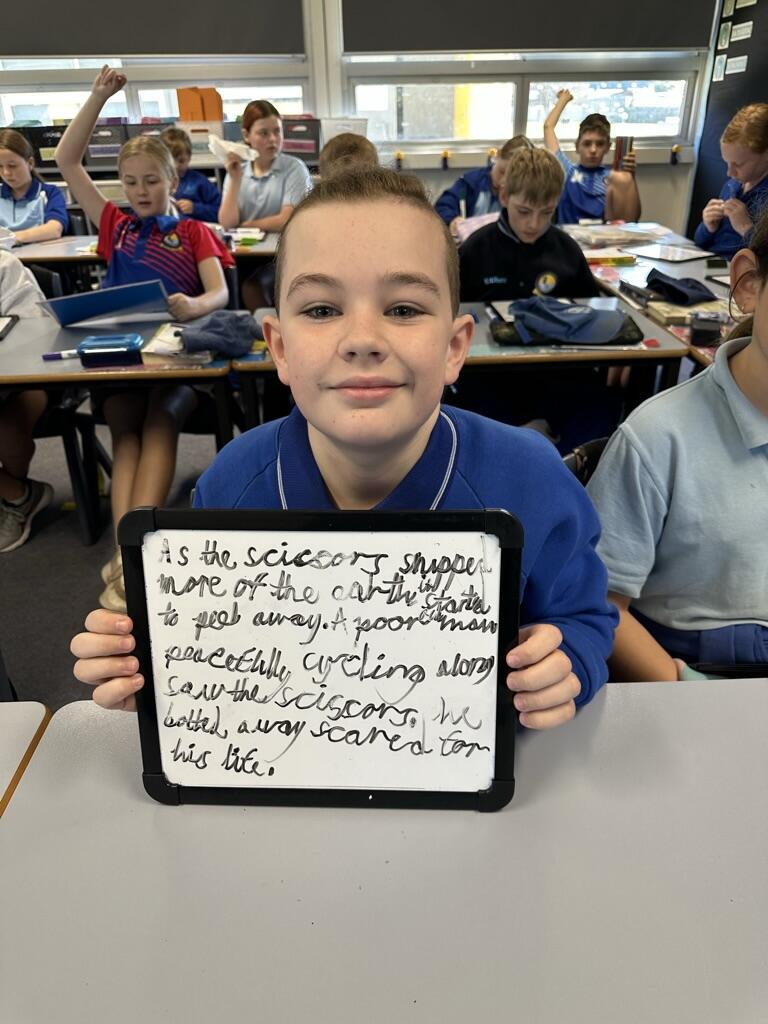 As the scissors snipped
more of the earth it started
to peel away. A poor man
peacefully cycling along
saw the scissors. he
bolted away scared for
his life.